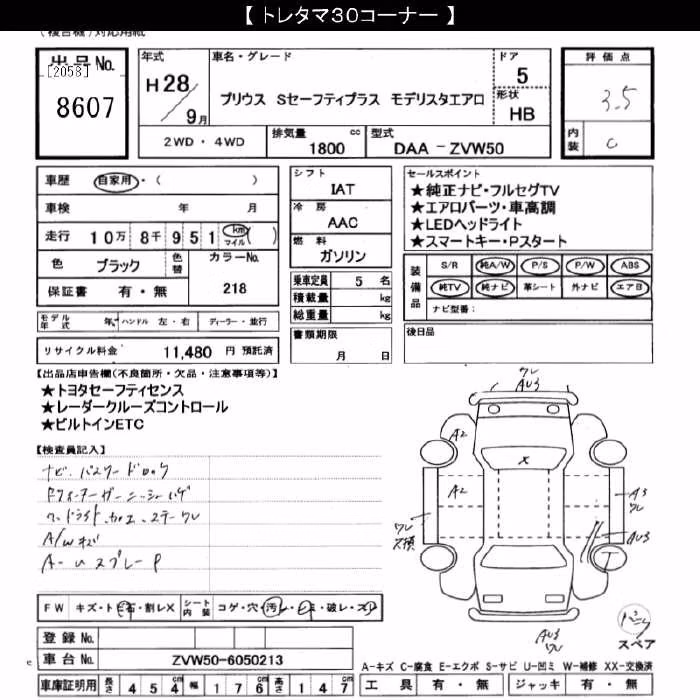 【 トレタマ30コーナー 】
出品No. [2058] 8607
年式 H28/9月
車名・グレード プリウス Sセーフティプラス モデリスタエアロ
ドア 5
形状 HB
評価点 3.5
内装 C
2WD・4WD
排気量 1800 cc
型式 DAA-ZVW50
車歴 自家用・( )
車検 年 月
走行 10万 8千 951 km マイル ( )
色 ブラック 色替 カラーNo. 218
保証書 有・無
モデル年式 年 ハンドル 左・右 ディーラー・並行
リサイクル料金 11,480 円 預託済
シフト IAT
冷房 AAC
燃料 ガソリン
乗車定員 5 名
積載量 kg
総重量 kg
書類期限 月 日
セールスポイント
★純正ナビ・フルセグTV
★エアロパーツ・車高調
★LEDヘッドライト
★スマートキー・Pスタート
装備品 S/R 純A/W P/S P/W ABS
純TV 純ナビ 革シート 外ナビ エアB
ナビ型番:
後日品
【出品店申告欄(不良箇所・欠品・注意事項等)】
★トヨタセーフティセンス
★レーダークルーズコントロール
★ビルトインETC
【検査員記入】
ナビ.パスワードロック
A/Wキズ
ワレ
AU3
A2
X
A2
A3
ワレ
ワレ
AU3
AU3
ワレ
スペア
FW キズ・トビ石・割レX シート内装 コゲ・穴・汚レ・シミ・破レ・スレ
登録No.
車台No. ZVW50-6050213
車庫証明用 長さ 454 幅 176 高さ 147
A-キズ C-腐食 E-エクボ S-サビ U-凹ミ W-補修 XX-交換済
工具 有・無 ジャッキ 有・無